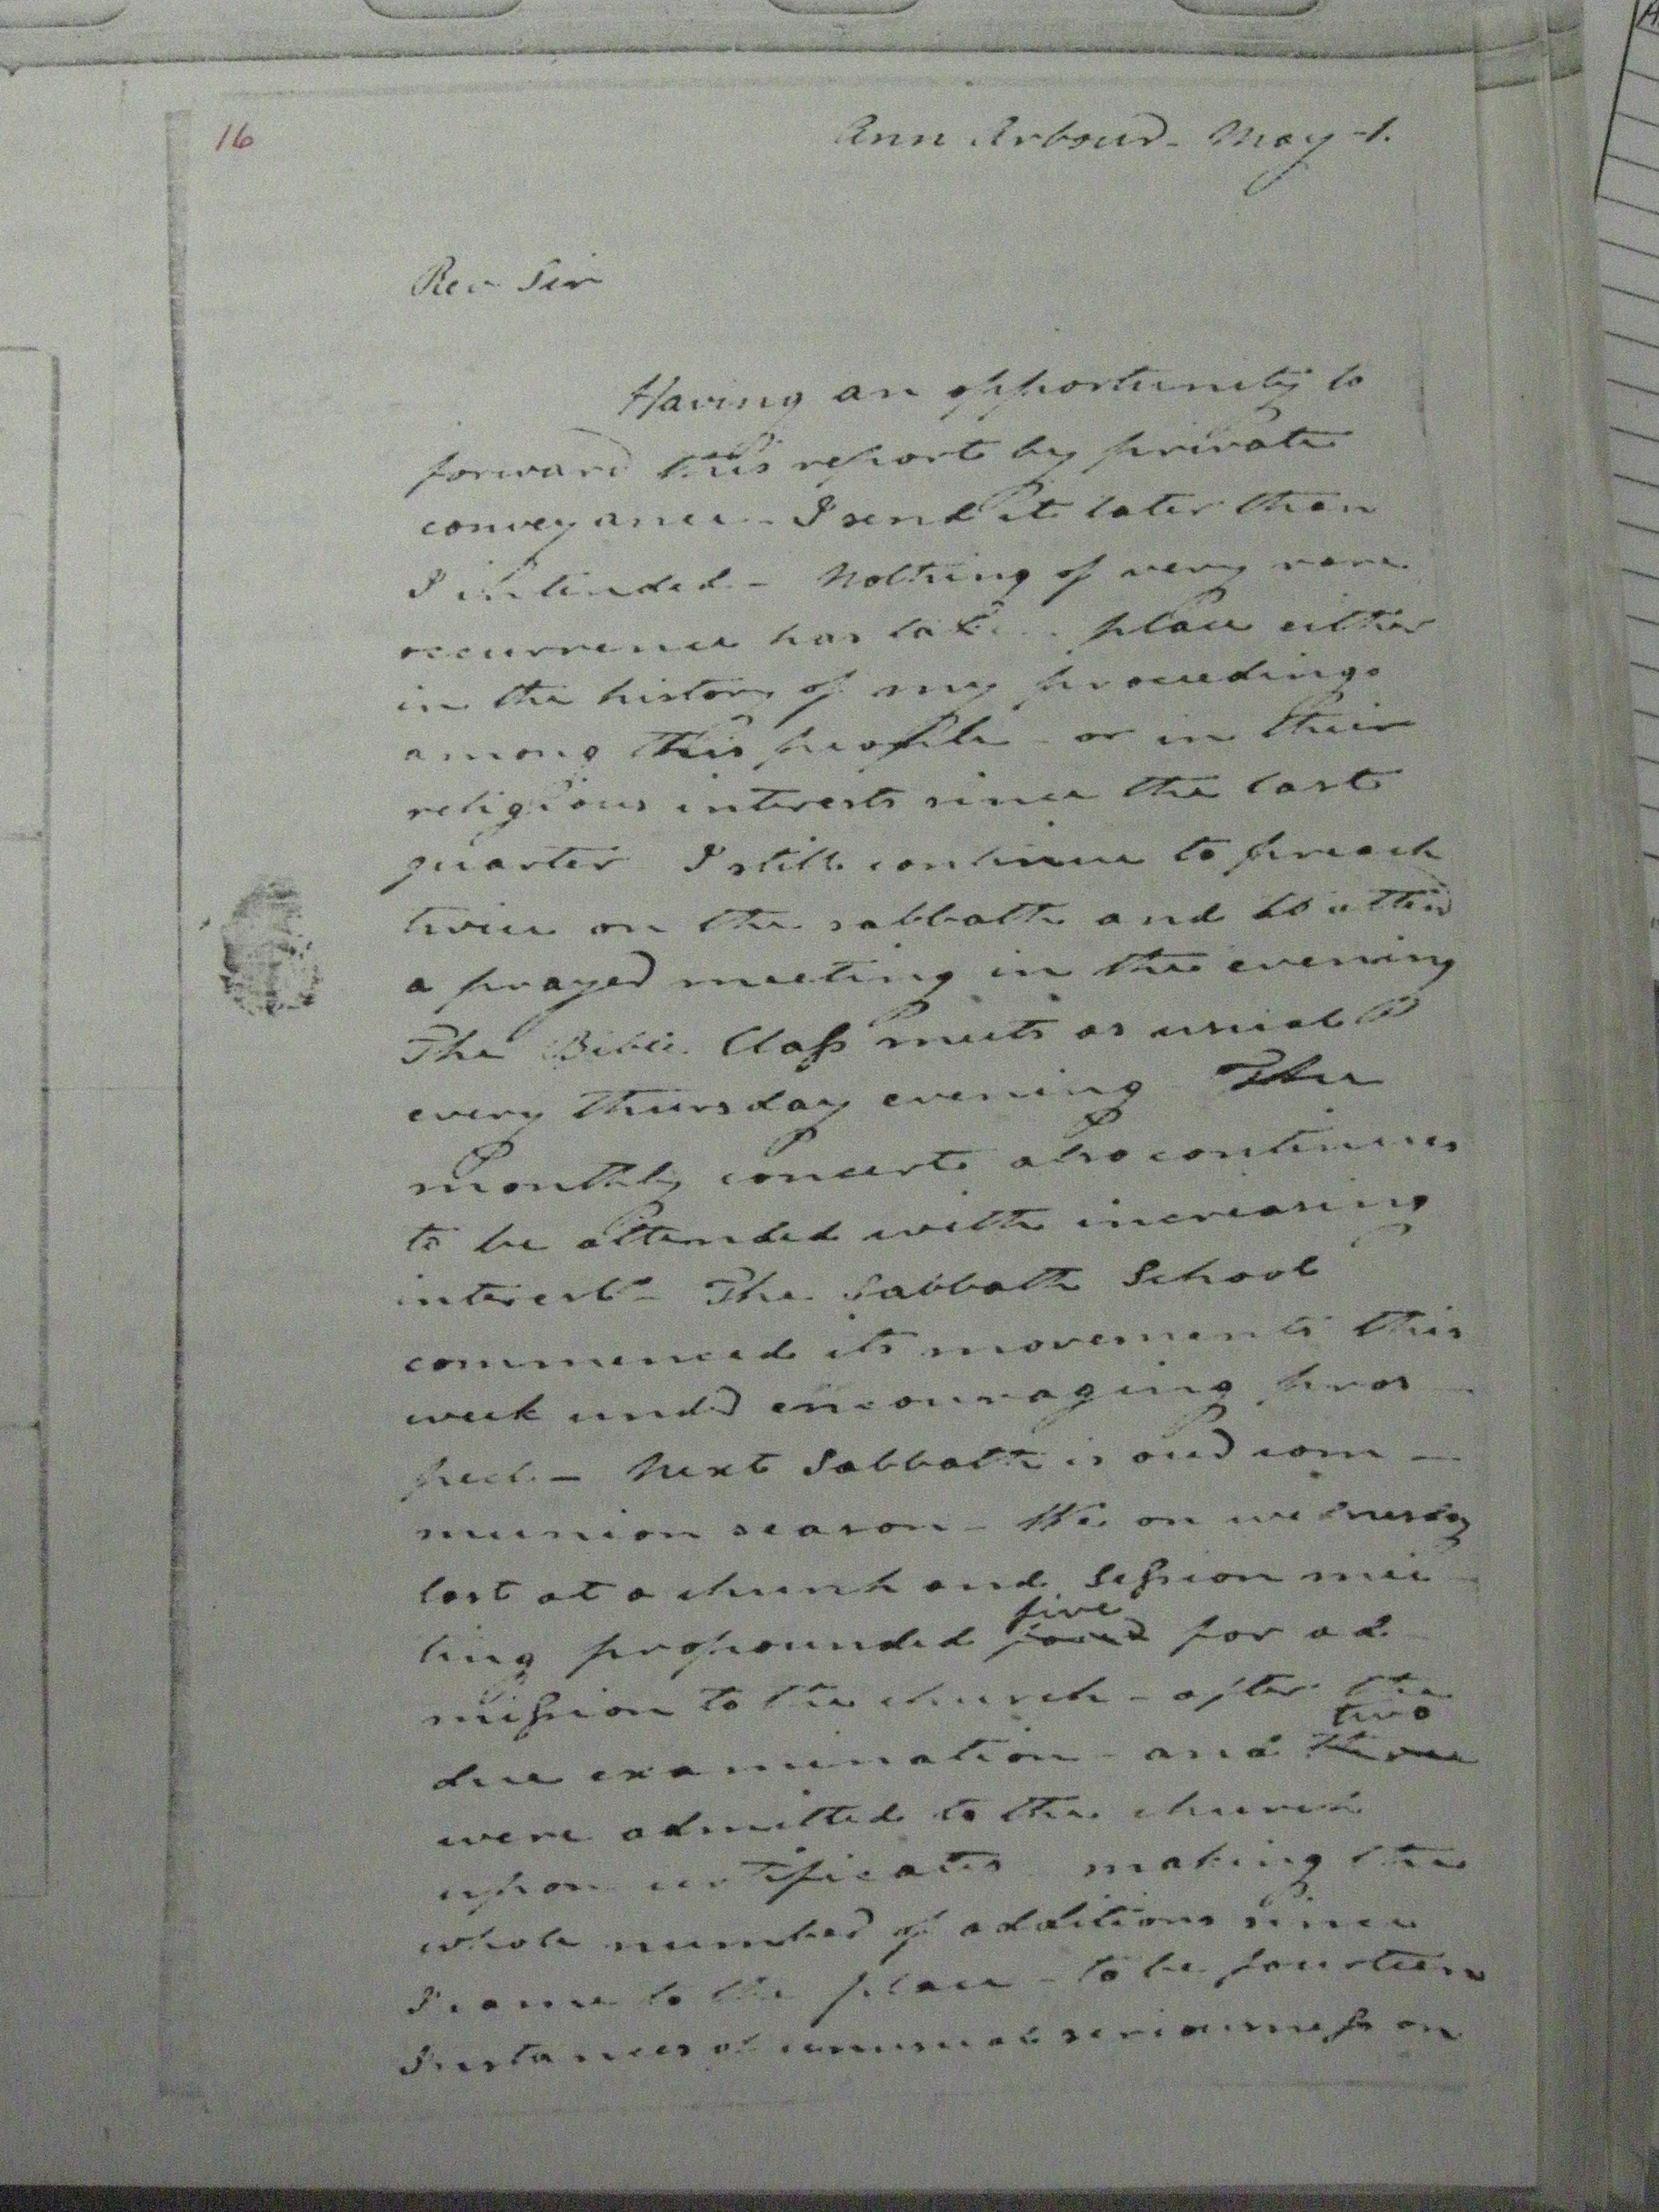 16
Ann Arbour - May 1.
Rev Sir
Having an opportunity to
forward this report by private
conveyance - I send it later than
I intended - Nothing of very rare
occurrence has taken place either
in the history of my proceedings
among this people - or in their
religious interests since the last
quarter I still continue to preach
twice on the sabbath and to attend
a prayer meeting in the evening
The Bible Class meets as usual
every thursday evening The
monthly concert also continues
to be attended with increasing
interest - The Sabbath School
commenced its movements this
week under encouraging pros
pect - Next Sabbath is our com
munion season - on wednesday
last at a church and Session mee
ting propounded five four for ad
mission to the church - after the
due examination - and two three
were admitted to the church
upon certificates making the
whole number of additions since
I came to the place - to be fourteen
Instances of unusual seriousness on